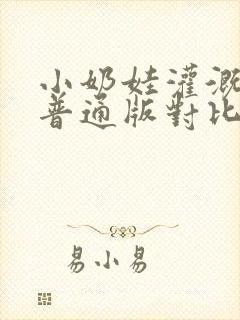 小奶娃灌溉
普通版對比
易小易